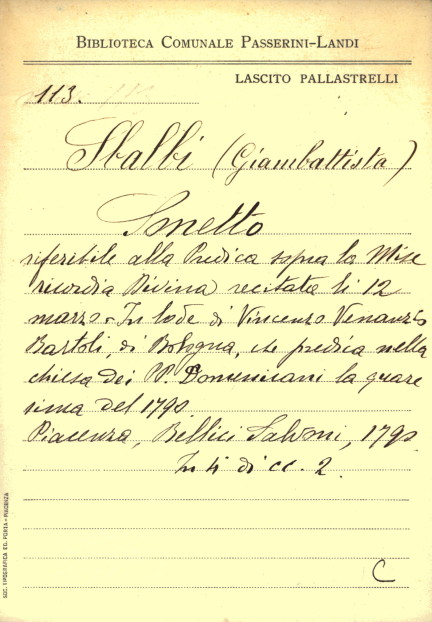 BIBLIOTECA COMUNALE PASSERINI-LANDI
LASCITO PALLASTRELLI
113.
Sbalbi (Giambattista)
Sonetto
riferibile alla Predica sopra la Mise
ricordia Divina recitata li 12
marzo - In lode di Vincenzo Venanzio
Bartoli, di Bologna, che predica nella
chiesa dei PP. Domenicani la quare
sima del 1790
Piacenza, Bellici Salvoni, 1790
In 4 di cc. 2.
C
SOC. TIPOGRAFICA ED. PORTA - PIACENZA